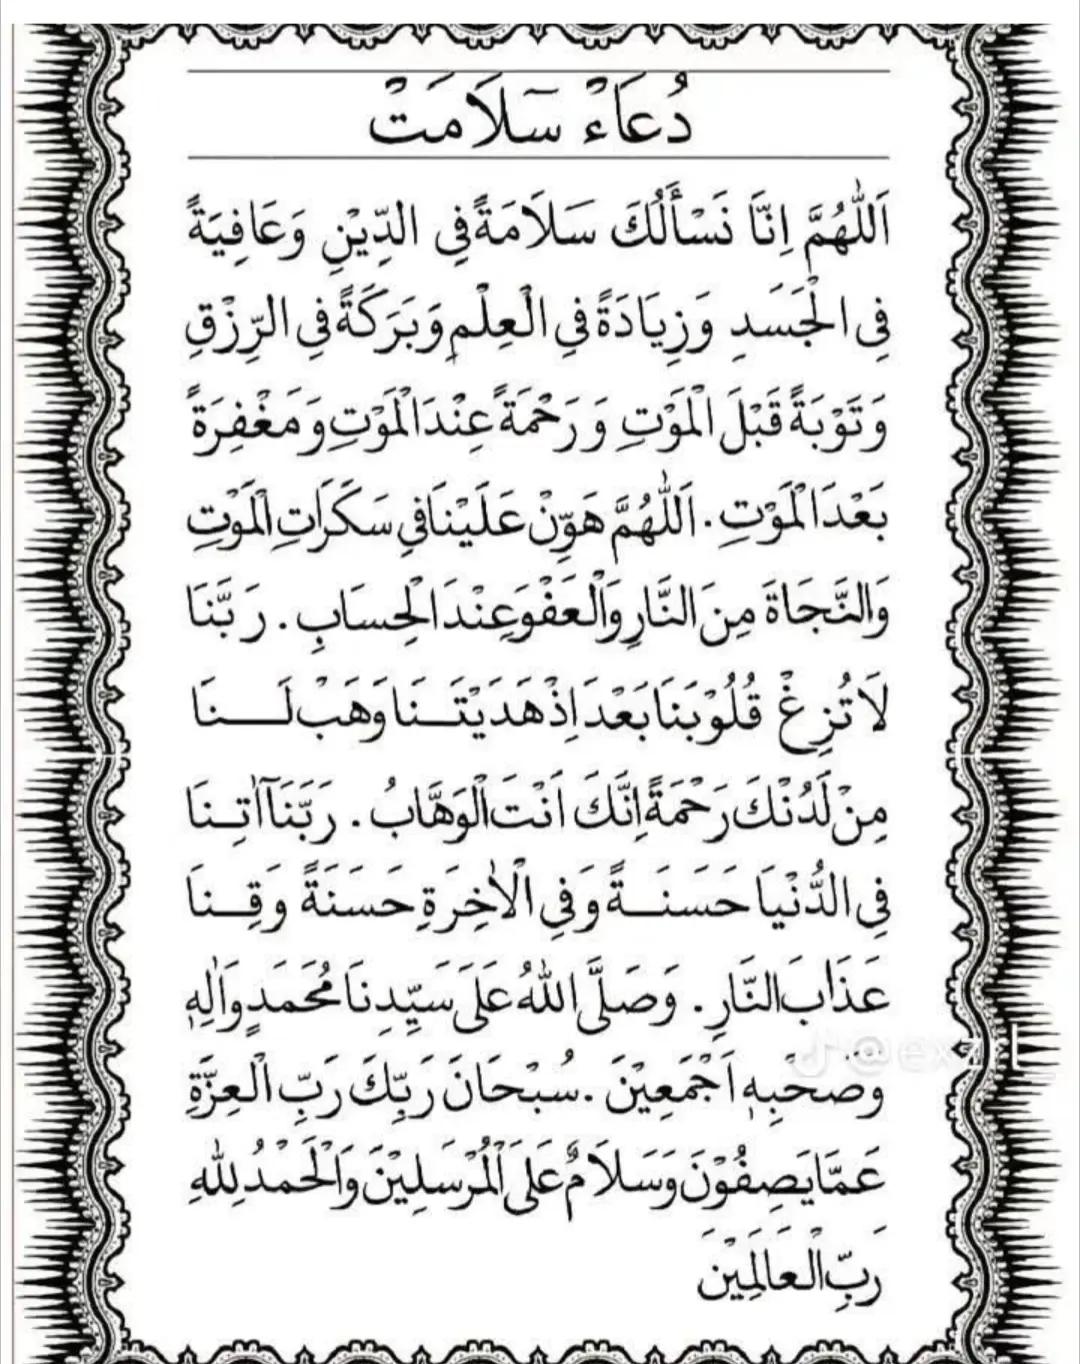 دُعَاءْ سَلَامَتْ
اَللّٰهُمَّ اِنَّا نَسْأَلُكَ سَلَامَةً فِى الدِّيْنِ وَعَافِيَةً
فِى الْجَسَدِ وَزِيَادَةً فِى الْعِلْمِ وَبَرَكَةً فِى الرِّزْقِ
وَتَوْبَةً قَبْلَ الْمَوْتِ وَرَحْمَةً عِنْدَ الْمَوْتِ وَمَغْفِرَةً
بَعْدَ الْمَوْتِ. اَللّٰهُمَّ هَوِّنْ عَلَيْنَا فِى سَكَرَاتِ الْمَوْتِ
وَالنَّجَاةَ مِنَ النَّارِ وَالْعَفْوَ عِنْدَ الْحِسَابِ. رَبَّنَا
لَا تُزِغْ قُلُوْبَنَا بَعْدَ اِذْ هَدَيْتَنَا وَهَبْ لَنَا
مِنْ لَدُنْكَ رَحْمَةً اِنَّكَ اَنْتَ الْوَهَّابُ. رَبَّنَآ اٰتِنَا
فِى الدُّنْيَا حَسَنَةً وَفِى الْاٰخِرَةِ حَسَنَةً وَقِنَا
عَذَابَ النَّارِ. وَصَلَّى اللّٰهُ عَلَى سَيِّدِنَا مُحَمَدٍ وَاٰلِهٖ
وَصَحْبِهٖ اَجْمَعِيْنَ. سُبْحَانَ رَبِّكَ رَبِّ الْعِزَّةِ
عَمَّا يَصِفُوْنَ وَسَلَامٌ عَلَى الْمُرْسَلِيْنَ وَالْحَمْدُ لِلّٰهِ
رَبِّ الْعَالَمِيْنَ